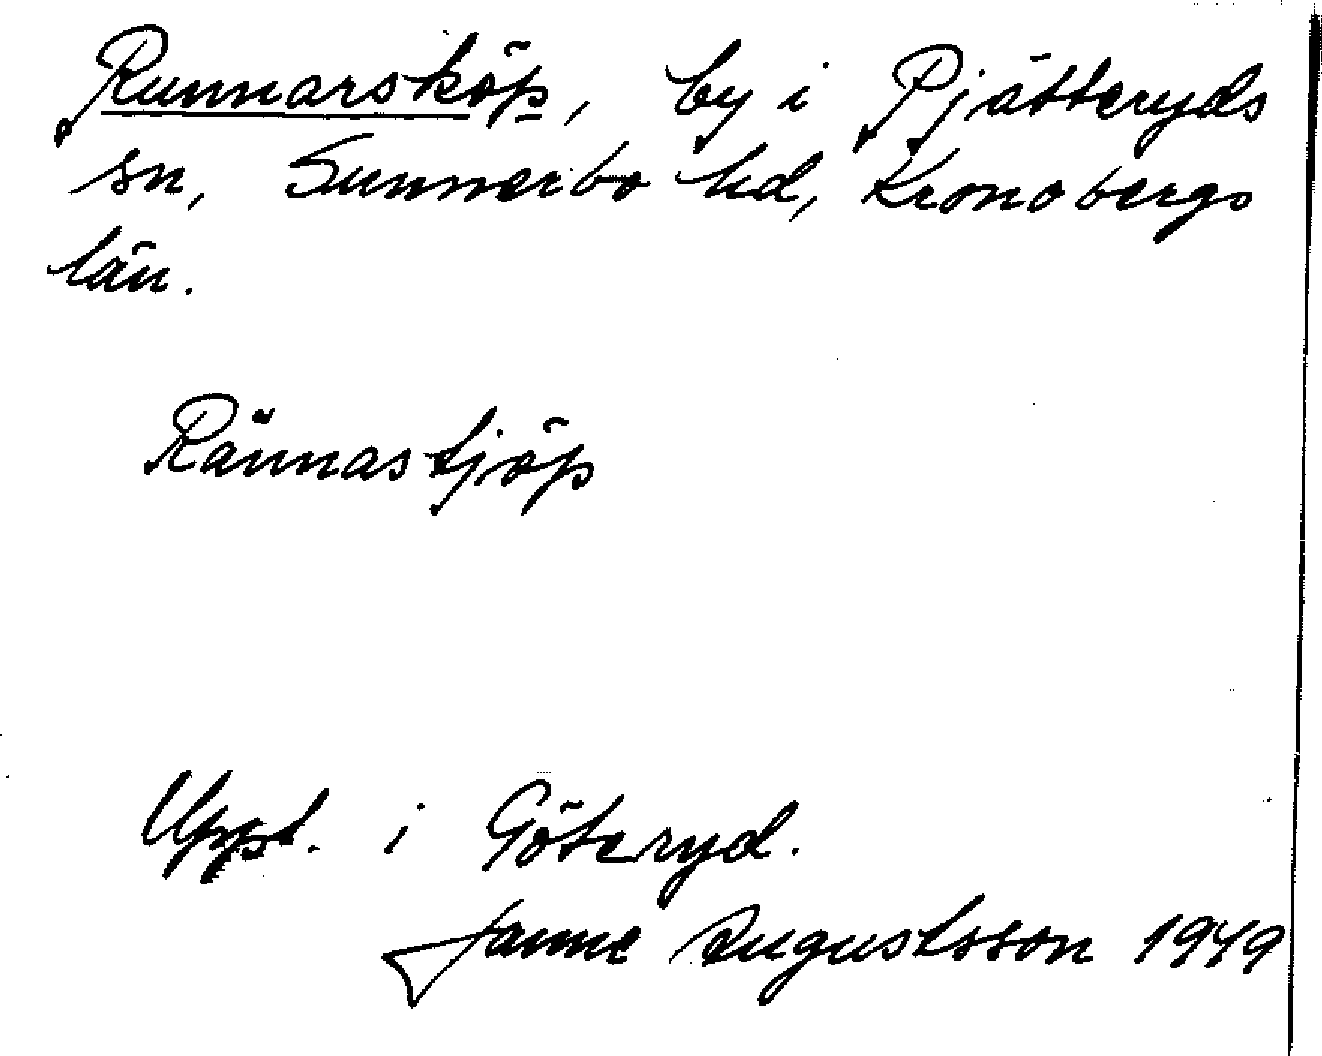 Runnarsköp, by i Pjätteryds
sn, Sunnerbo hd, Kronobergs
län.
Rännastjöp
Uppt. i Göteryd.
Janne Augustsson 1949